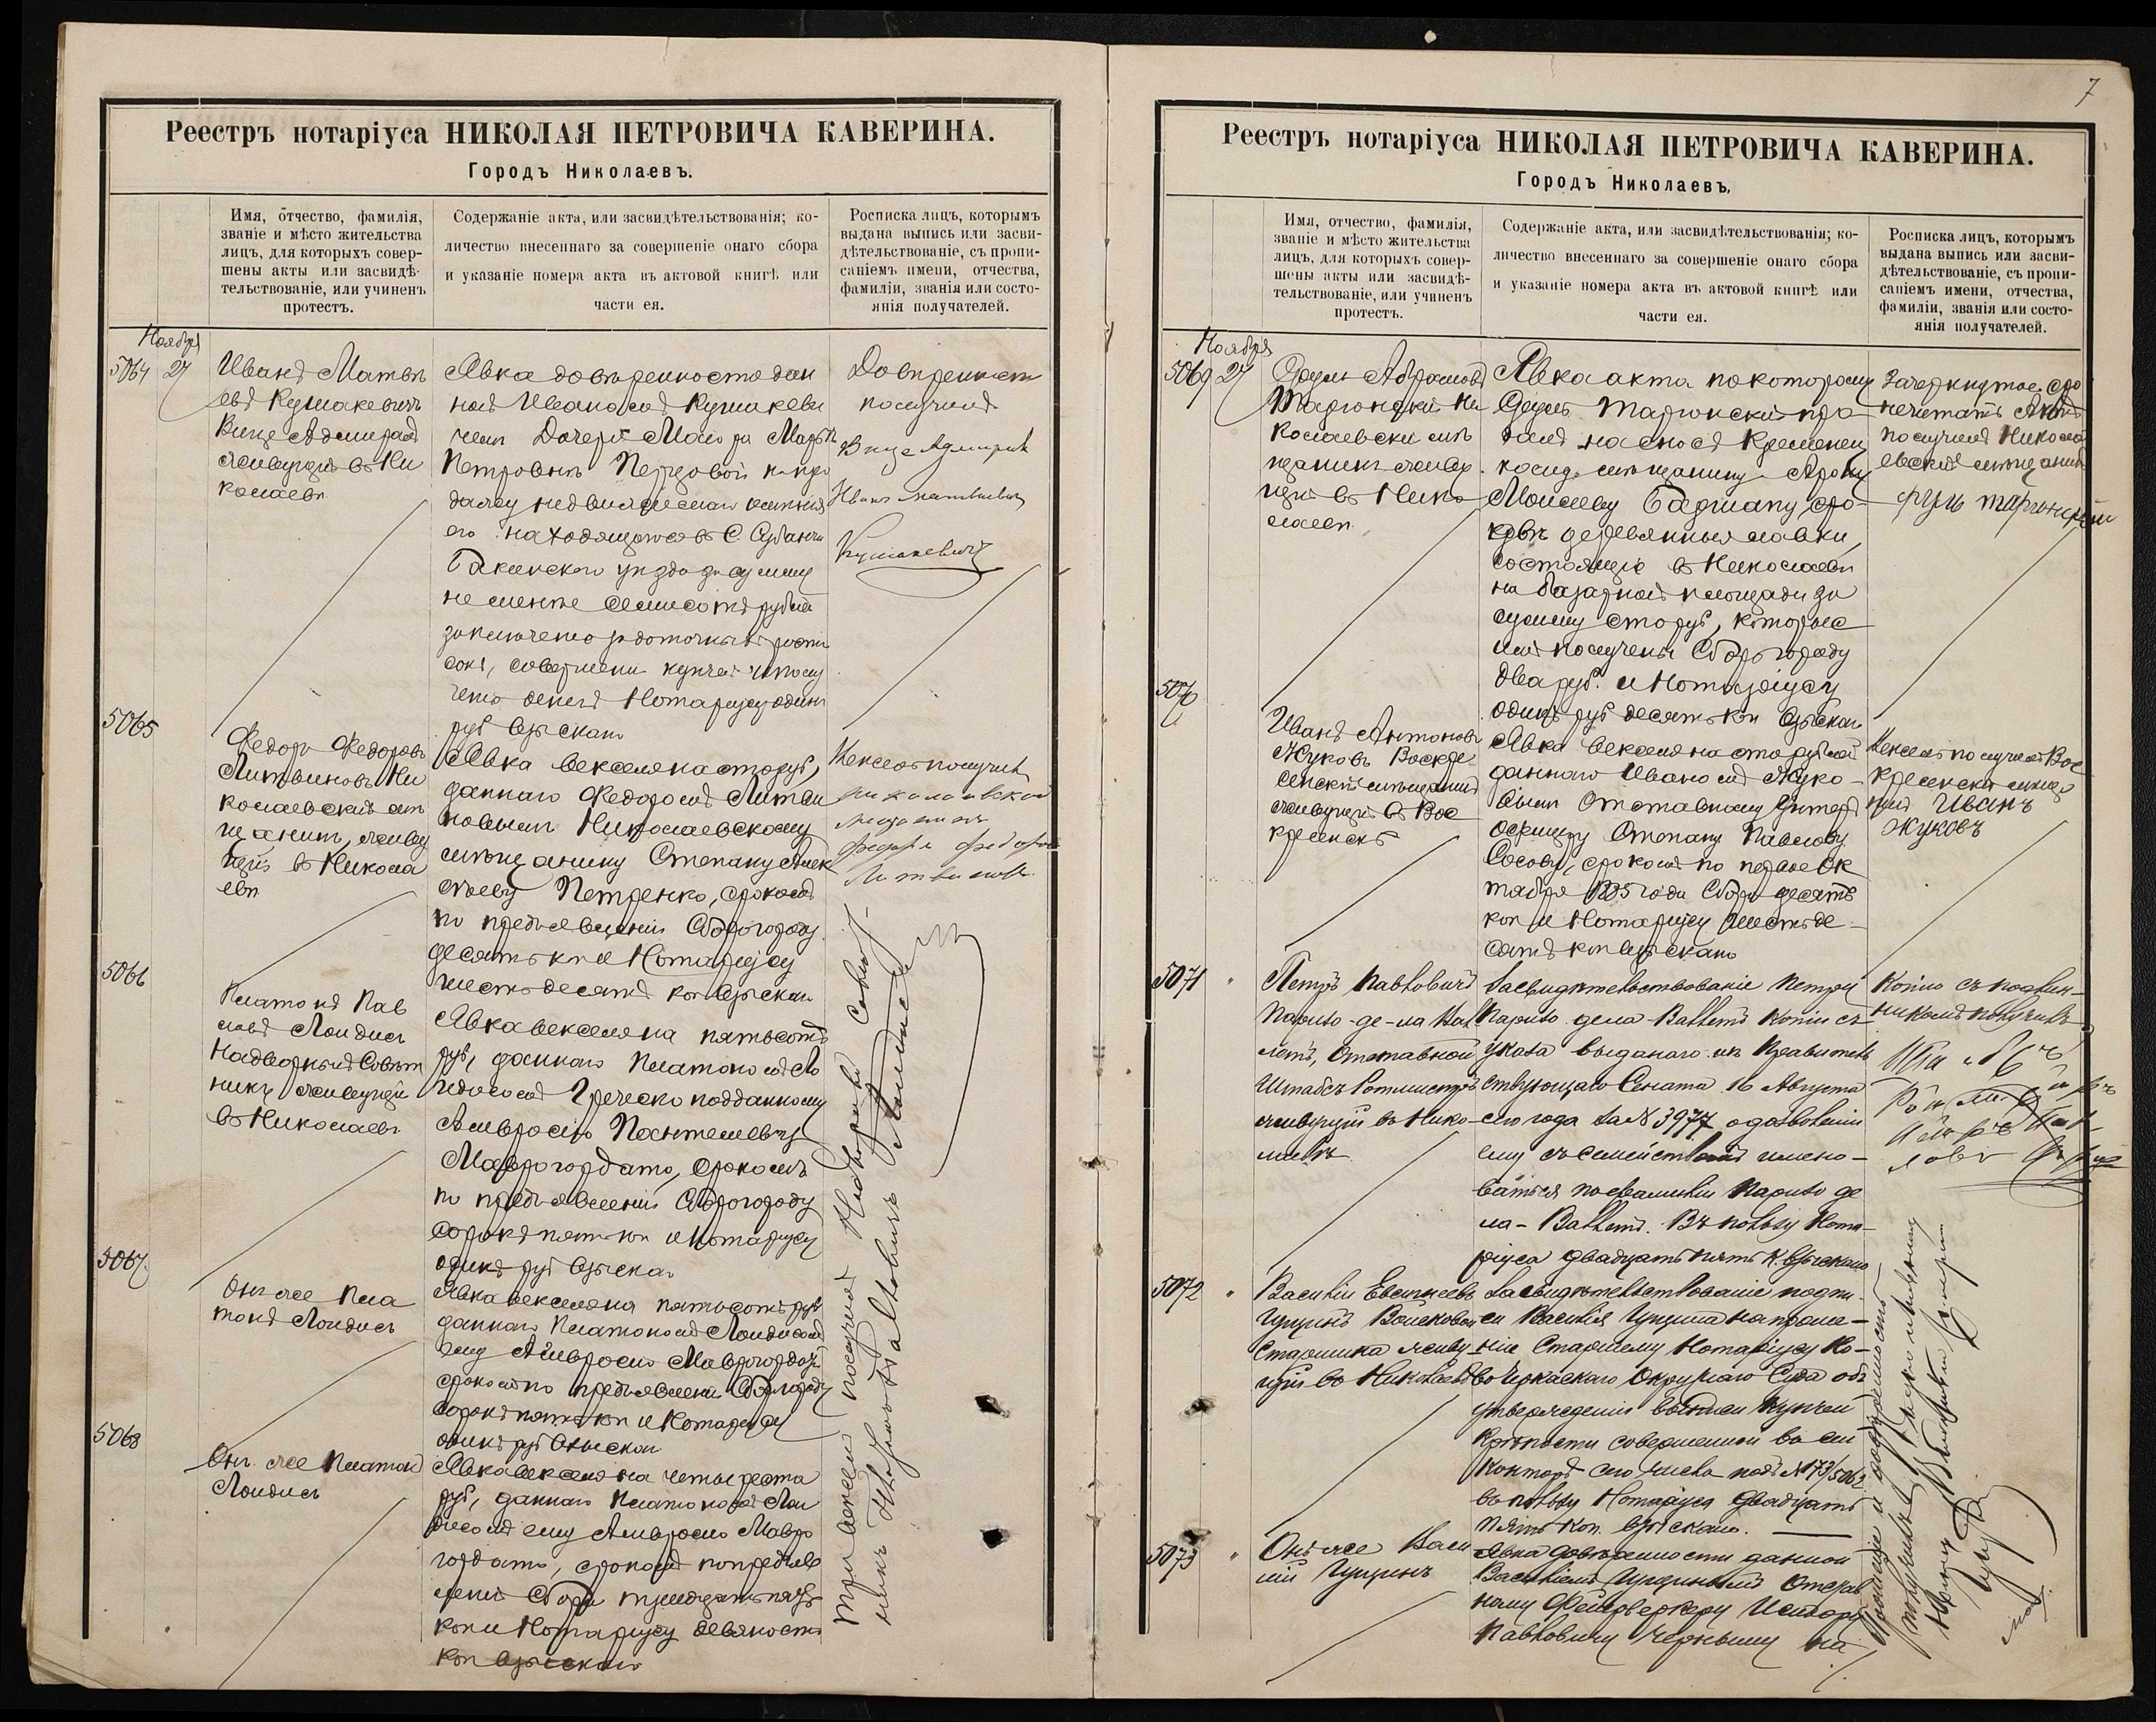 Реестръ нотаріуса НИКОЛАЯ ПЕТРОВИЧА КАВЕРИНА.
Городъ Николаевъ.
Имя, отчество, фамилія,
званіе и мѣсто жительства
лицъ, для которыхъ совер-
шены акты или засвидѣ-
тельствованіе, или учиненъ
протестъ.
Содержаніе акта, или засвидѣтельствованія; ко-
личество внесеннаго за совершеніе онаго сбора
и указаніе номера акта въ актовой книгѣ или
части ея.
Росписка лицъ, которымъ
выдана выпись или засви-
дѣтельствованіе, съ пропи-
саніемъ имени, отчества,
фамиліи, званія или состо-
янія получателей.
Ноября
5064 27
Иванъ Матвѣ
евъ Кушакевичъ
Вице Адмиралъ
живущій въ Ни
колаевѣ
Явка довѣренности дан
ной Иваномъ Кушакеви
чемъ Дочери Маіора Марьѣ
Петровнѣ Перцовой на про
дажу недвижимаго имѣнія
его находящагося въ С
Бакинскаго уѣзда за сумму
не менѣе семисотъ рублей
совершеніи купчей и полу
ченіе денегъ Нотаріусу одинъ
руб взыскано
Довѣренность
получилъ
Вице Адмиралъ
Иванъ Матвѣевичъ
Кушакевичъ
5065
Федоръ Федоровъ
Литвиновъ Ни
колаевскій мѣ
щанинъ, живу
щій въ Никола
евѣ
Явка векселя на сто руб,
даннаго Федоромъ Литви
новымъ Николаевскому
мѣщанину Степану Алек
сѣеву Петренко, срокомъ
по предъявленіи Сбора городу
десять коп и Нотаріусу
шестьдесятъ коп взыскано
Вексель получилъ
николаевской
мещанинъ
федоръ федоровъ
Литвиновъ
5066
Платонъ Пав
ловъ Лоидисъ
Надворный Совѣт
никъ живущій
въ Николаевѣ
Явка векселя на пятьсотъ
руб, даннаго Платономъ Ло
идисомъ Греческо подданному
Амвросію Пантелеевичу
Маврогордато, срокомъ
по предъявленіи Сбора городу
сорокъ пять коп и Нотаріусу
одинъ руб взыскано
5067
Онъ же Пла
тонъ Лоидисъ
Явка векселя на пятьсотъ руб
даннаго Платономъ Лоидисомъ
ему Амвросію Маврогордато
срокомъ по предъявленіи Сбора городу
сорокъ пять коп и Нотаріусу
одинъ руб взыскано
5068
Онъ же Платонъ
Лоидисъ
Явка векселя на четыреста
руб, даннаго Платономъ Лои
дисомъ ему Амвросію Мавро
гордато, срокомъ по предъяв
леніи Сбора тридцать пять
коп и Нотаріусу девяносто
коп взыскано
Три векселя получилъ Надворный Совѣт-
никъ Платонъ Павловичъ Лоидисъ
7
Реестръ нотаріуса НИКОЛАЯ ПЕТРОВИЧА КАВЕРИНА.
Городъ Николаевъ.
Имя, отчество, фамилія,
званіе и мѣсто жительства
лицъ, для которыхъ совер-
шены акты или засвидѣ-
тельствованіе, или учиненъ
протестъ.
Содержаніе акта, или засвидѣтельствованія; ко-
личество внесеннаго за совершеніе онаго сбора
и указаніе номера акта въ актовой книгѣ или
части ея.
Росписка лицъ, которымъ
выдана выпись или засви-
дѣтельствованіе, съ пропи-
саніемъ имени, отчества,
фамиліи, званія или состо-
янія получателей.
Ноября
5069 27
Абрамовъ
Таргонскій Ни
колаевскій мѣ
щанинъ живу
щій въ Нико
лаевѣ
Явка акта по которому
Таргонскій про
далъ на сносъ Кременец
кому мѣщанину Арону
Моисееву Бадшану, сро
двѣ деревянныя лавки,
состоящія въ Николаевѣ
на базарной площади за
сумму сто руб, которые
имъ получены Сбора городу
два руб. и Нотаріусу
одинъ руб десять коп взыскано
Зачеркнутое: сро
не читать Актъ
получилъ Никола
евскій мѣщанинъ
Таргонскій
5070
Иванъ Антоновъ
Жуковъ Воскре
сенскій мѣщанинъ
живущій въ Вос
кресенскѣ
Явка векселя на сто рублей
даннаго Иваномъ Жуко-
вымъ Отставному Унтеръ
Офицеру Степану Павлову
Сосову, срокомъ по первое Ок
тября 1885 года Сбора десять
коп и Нотаріусу шестьде-
сятъ коп взыскано
Вексель получилъ Вос
кресенскій мѣща
нинъ Иванъ
Жуковъ
5071 "
Петръ Павловичъ
Парисо-де-ла Вал
летъ, Отставной
Штабсъ Ротмистръ
живущій въ Нико-
лаевѣ
Засвидѣтельствованіе Петру
Парисо дела-Валлетъ копіи съ
указа выданаго изъ Правитель
ствующаго Сената 16 Августа
сего года за № 3977 о дозволеніи
ему съ семействомъ имено-
ваться по фамиліи Парисо де
ла-Валлетъ. Въ пользу Нота-
ріуса двадцать пять к. взыскано
Копію съ подлин-
никомъ получилъ
5072 "
Василій Евсигнеевъ
Цуцинъ Войсковой
Старшина живу
щій въ Николаевѣ
Засвидѣтельствованіе подпи-
си Василія Цуцина на проше-
ніи Старшему Нотаріусу Но-
вочеркаскаго Окружнаго Суда объ
утвержденіи выписи купчей
крѣпости совершенной въ сей
конторѣ сего числа подъ № 173/5062
въ пользу Нотаріуса двадцать
пять коп. взыскано.
5073 "
Онъ же Васи
лій Цуцинъ
Явка довѣренности данной
Василіемъ Цуцинымъ Отстав
ному Фейерверкеру Исидору
Павловичу Чернышу на
Прошеніе и довѣренность
получилъ